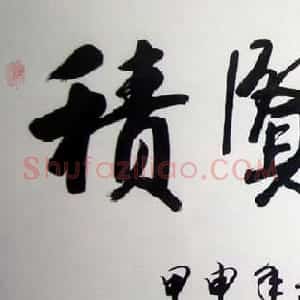 積賢
Shufaziliao.COM
甲申年